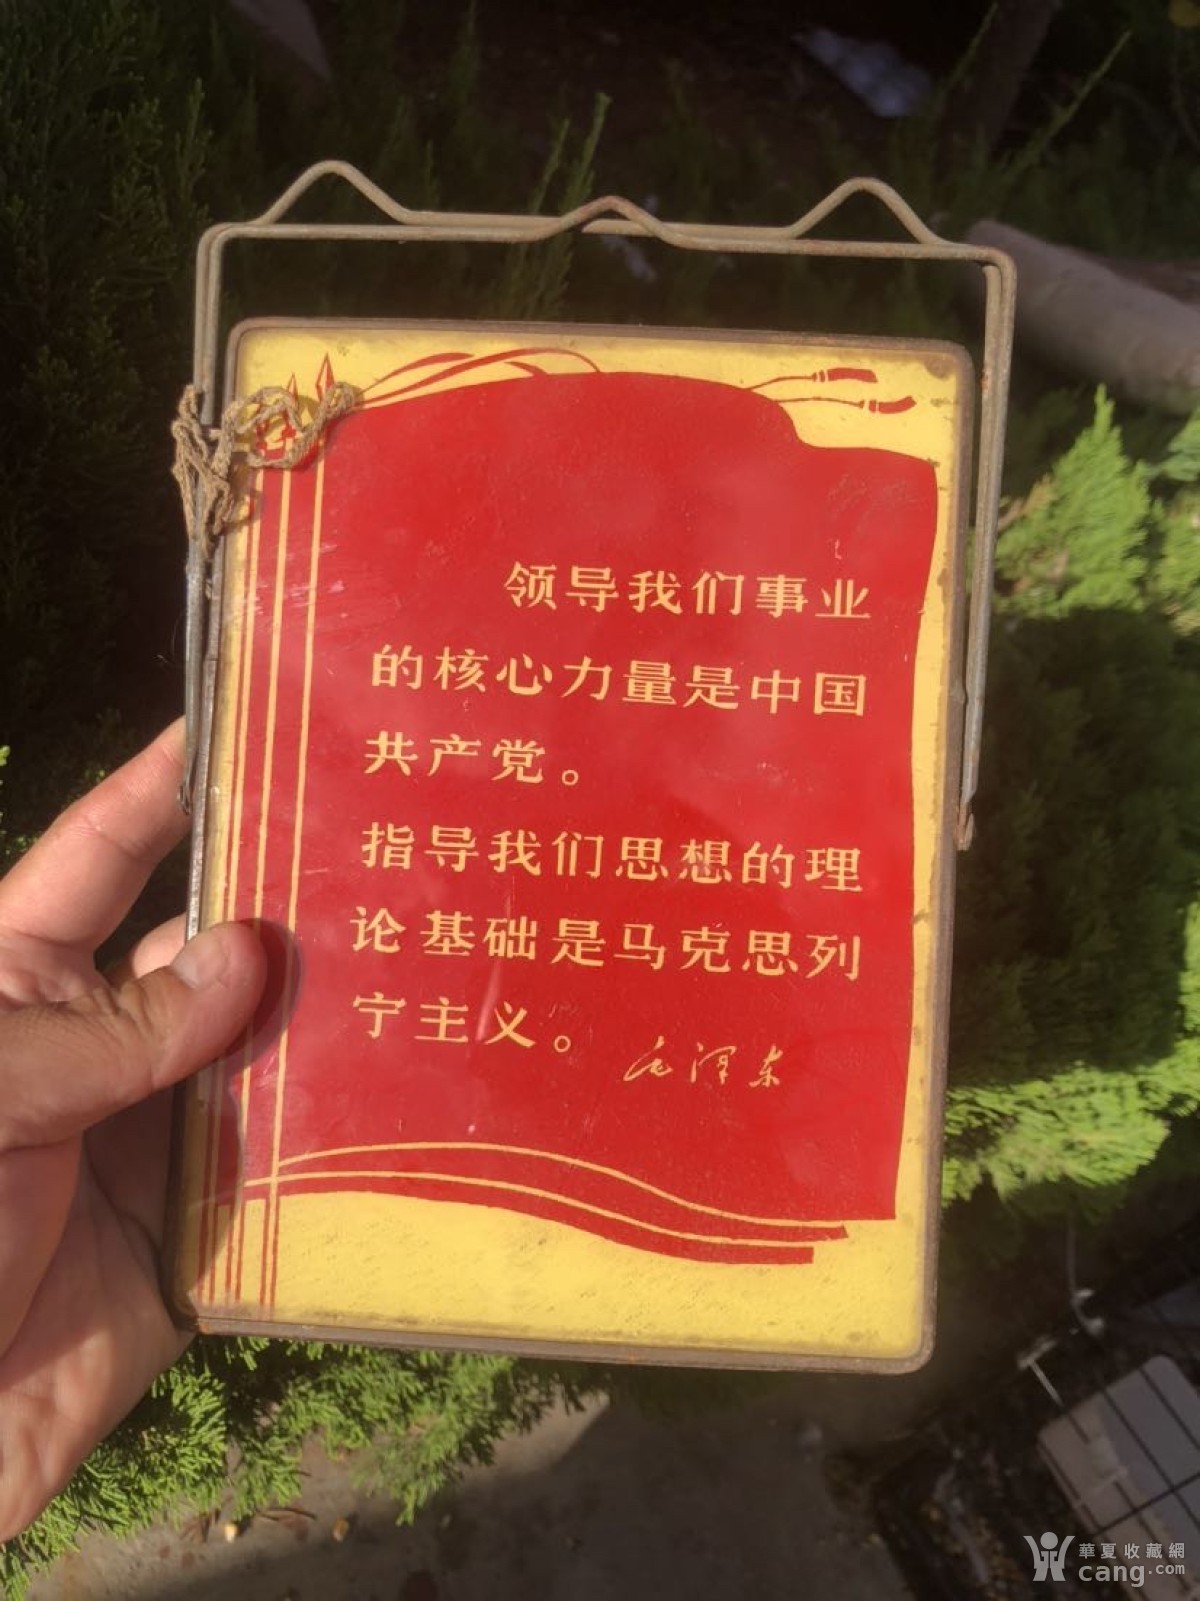 领导我们事业
的核心力量是中国
共产党。
指导我们思想的理
论基础是马克思列
宁主义。
毛泽东
華夏收藏網
cang.com